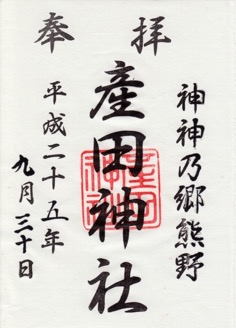 奉拝
神神乃郷熊野
産田神社
平成二十五年
九月三十日